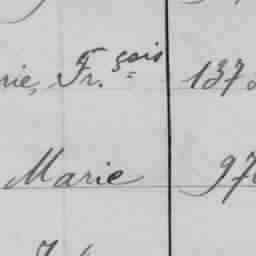 rie, Fr.çois 137
Marie 97